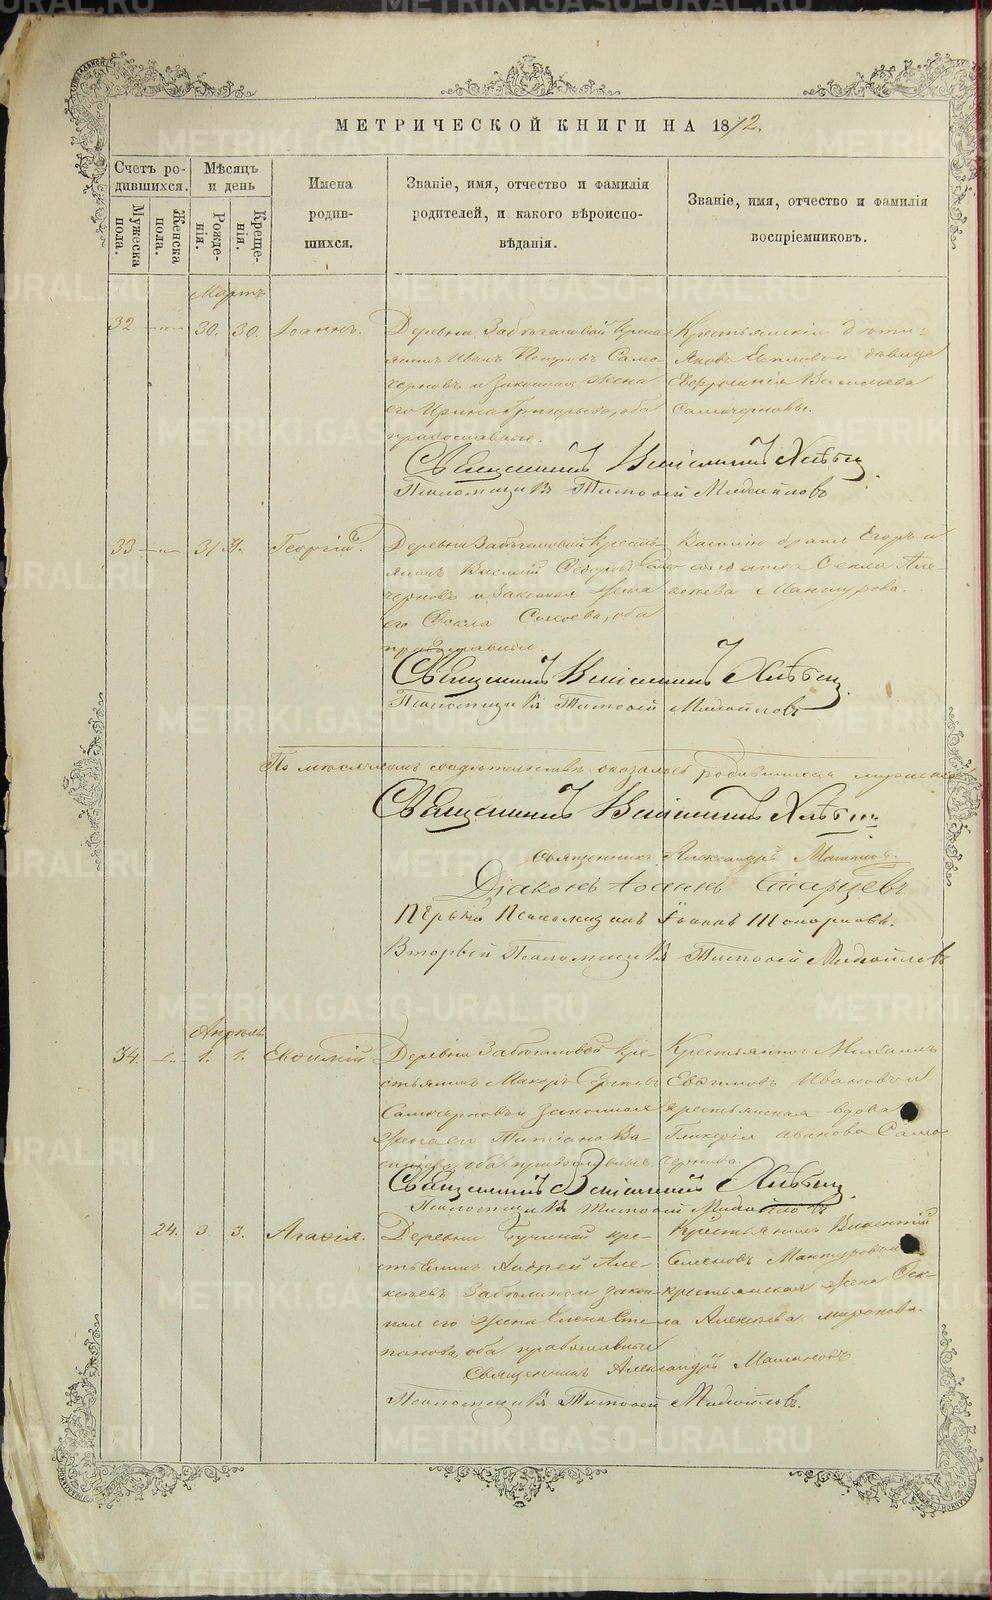 МЕТРИЧЕСКОЙ КНИГИ НА 1872.
Счетъ ро-
дившихся.
Мужеска
пола.
Женска
пола.
Мѣсяцъ
и день
Рожде-
нія.
Креще-
нія.
Имена
родив-
шихся.
Званіе, имя, отчество и фамилія
родителей, и какого вѣроиспо-
вѣданія.
Званіе, имя, отчество и фамилія
воспріемниковъ.
Мартъ
32 30. 30. Іоаннъ.
Деревни
Иванъ Петровъ Само-
черновъ и законная жена
его Ирина Григорьева, оба
православные.
Крестьянскія дѣти:
Яковъ девица
Евфросинія Васильева
Самочерновы.
Священникъ Веніаминъ Хлѣбин
Псаломщикъ Тимофей Михайловъ
33 31 Георгій.
Деревни кресть-
янинъ Василій Ѳедоровъ Само-
черновъ и законная жена
его Ѳекла Сысоева, оба
православные.
братъ Егоръ и
солдатка Ѳекла Але-
ксѣева Мантурова.
Священникъ Веніаминъ Хлѣбин
Псаломщикъ Тимофей Михайловъ
По мѣсячномъ свидѣтельствѣ оказалось родившихся
Священникъ Веніаминъ Хлѣбин
Священникъ Александръ
Діаконъ Іоаннъ Старцевъ
Первый Псаломщикъ Іоаннъ Топорковъ.
Второй Псаломщикъ Тимофей Михайловъ
Апрѣль
34. 1. 1. Евѳимій
Деревни кре-
стьянинъ Макаръ Сергѣевъ
Самочерновъ и законная
жена его Татіана Ва-
сильева, оба православные.
Крестьянинъ Михаилъ
Евѳимовъ Ивановъ и
крестьянская вдова
Гликерія Иванова Само-
чернова.
Священникъ Веніаминъ Хлѣбин
Псаломщикъ Тимофей Михайловъ
24. 3 3. Агаѳія.
Деревни кре-
стьянинъ Андрей Але-
ксѣевъ и закон-
ная его жена Елена Сте-
панова, оба православные
Крестьянинъ Викентій
Семеновъ Мантуровъ и
крестьянская жена Ѳек-
ла Алексѣева Миронова.
Священникъ Александръ
Псаломщикъ Тимофей Михайловъ.
METRIKI.GASO-URAL.RU